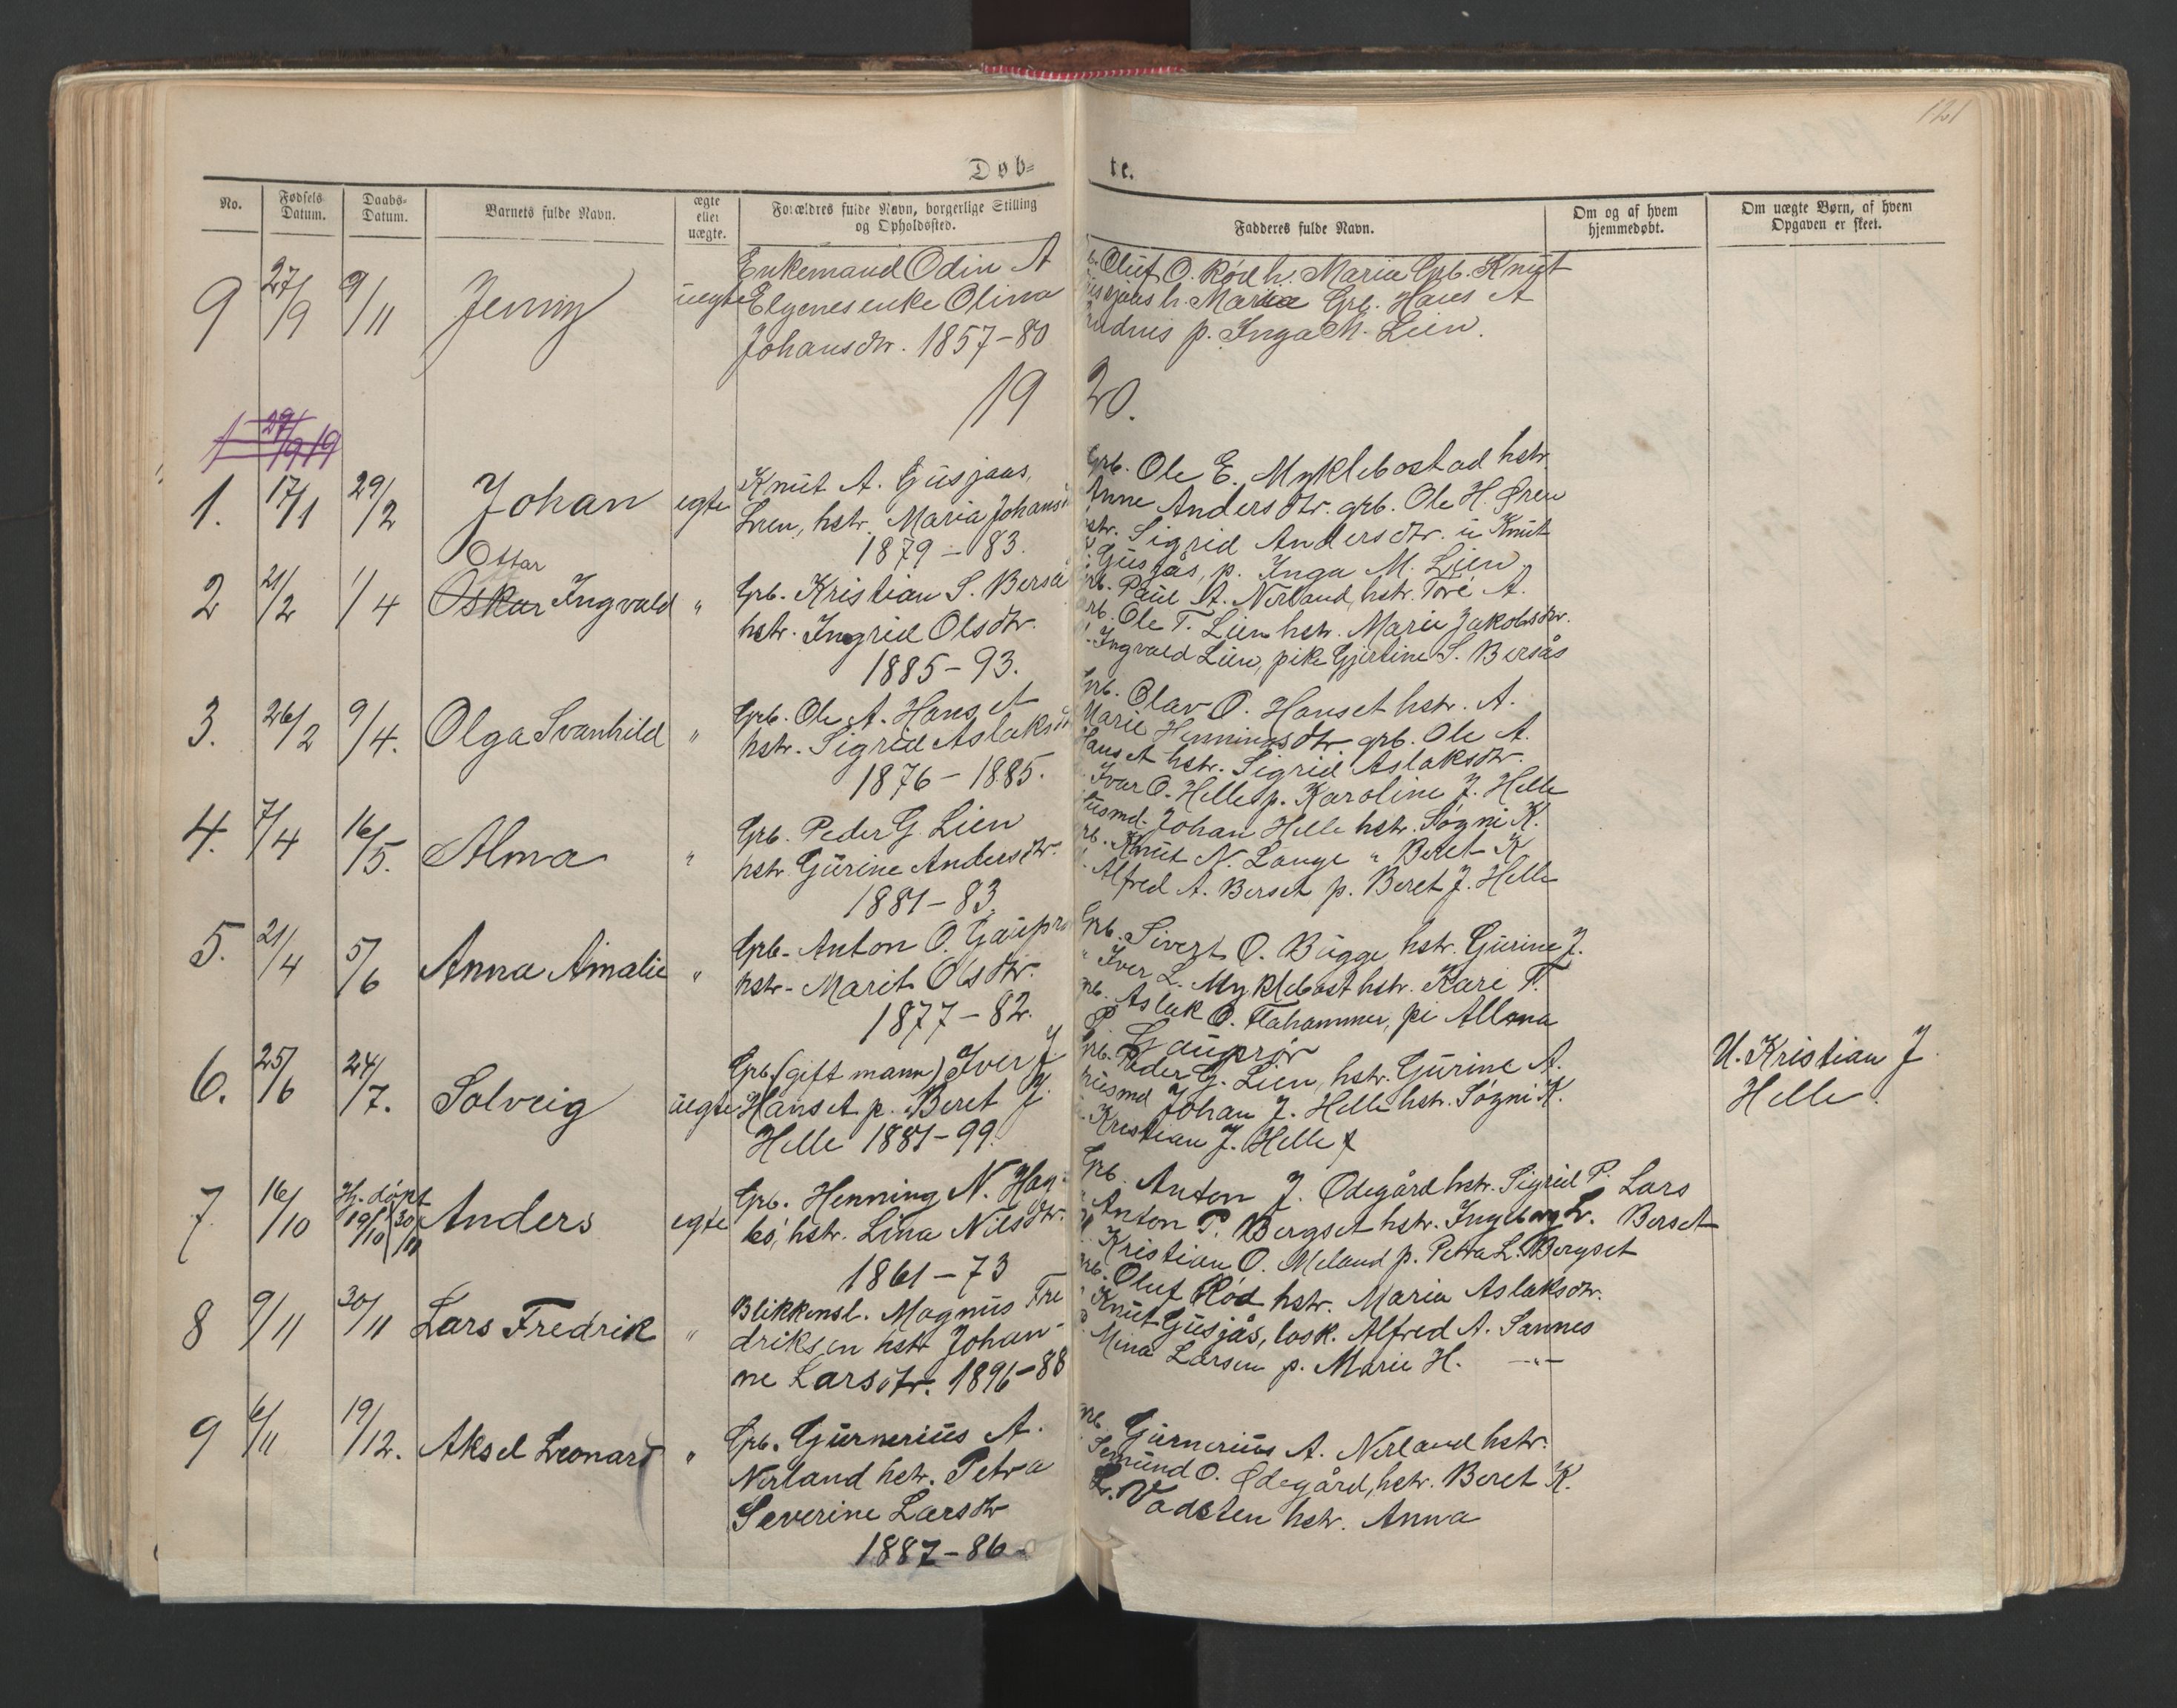 121
Døbte.
No.
Fødsels Datum.
Daabs-Datum.
Barnets fulde Navn.
ægte eller uægte.
Forældres fulde Navn, borgerlige Stilling og Opholdssted.
Fadderes fulde Navn.
Om og af hvem hjemmedøbt.
Om uægte Børn, af hvem Opgaven er skeet.
9 27/9 9/11 Jenny uegte
Enkemand Odin A
Elgenes enke Olina
Johansdtr. 1857-80
Oluf O. Rød h. Maria Grb. Knut
h. Maria Grb. Hans A
p. Inga M. Lien.
1920.
1 27/9 19
1. 17/1 29/2 Johan egte
Knut A. Gusjaas,
Lien, hstr. Maria Johansd
1879-83.
Grb. Ole E. Myklebostad hstr.
Anne Andersdtr. grb. Ole H. Øren
hstr. Sigrid Andersdtr. u Knut
Gusjås, p. Inga M. Lien
2 21/2 1/4 Ottar
Oskar Ingvald "
Grb. Kristian S. Berså
hstr. Ingrid Olsdtr.
1885-93.
Grb. Paul A. Nerland, hstr. Tore A.
grb. Ole T. Lien hstr. Marie Jakobsdtr.
Ingvald Lien, pike Gjertine S. Bersås
3. 26/2 9/4. Olga Svanhild "
Grb. Ole A. Hanset
hstr. Sigrid Aslaksd
1876-1885.
Grb. Olav O. Hanset hstr. A.
Marie Henningsdtr. grb. Ole A.
Hanset hstr. Sigrid Aslaksdtr.
Ivar O. Helle p. Karoline J. Helle
4. 7/4 16/5. Alma "
Grb. Peder G. Lien
hstr. Gurine Andersdtr.
1881-83.
Husmd. Johan Helle hstr. Søgni K.
grb. Knut N. Lange " Beret K
Alfred A. Berset p. Beret J. Helle
5. 21/4 5/6 Anna Amalie "
Grb. Anton O. Gaupr
hstr. Marit Olsdtr.
1877-82.
Grb. Sivert O. Bugge hstr. Gurine J.
" Iver L. Myklebost hstr. Kari T.
grb. Aslak O. Flahammer, pi Allma
P Gauprør
6. 25/6 24/7. Solveig uegte
Grb. (gift mann) Iver J
Hanset p. Beret J.
Helle 1881-99.
grb. Peder G. Lien, hstr. Gurine A.
husmd Johan J. Helle hstr. Søgni K.
Kristian J. Helle
U. Kristian J
Helle.
7. 16/10 Hj. døpt 19/10 30/11 Anders egte
Grb. Henning N. Hag
bø, hstr. Lina Nilsdtr.
1861-73
Grb. Anton J. Ødegård hstr. Sigrid P. Lars
" Anton P. Bergset hstr. Ingeborg L. Berset
Kristian O. Meland p. Petra L. Bergset
8 9/11 30/11 Lars Fredrik "
Blikkensl. Magnus Fre
driksen hstr Johan-
ne Larsdtr. 1896-88
grb. Oluf Rød hstr. Maria Aslaksdtr.
" Knut Gusjås, losk. Alfred A. Sannes
Mina Larsen p. Marie H. -"-
9 6/11 19/12. Aksel Leonard "
Grb. Gurnerius A.
Nerland hstr. Petra
Severine Larsdtr
1887-86
grb. Gurnerius A. Nerland hstr.
Semund O. Ødegård, hstr. Beret K.
L. Vadsten hstr. Anna